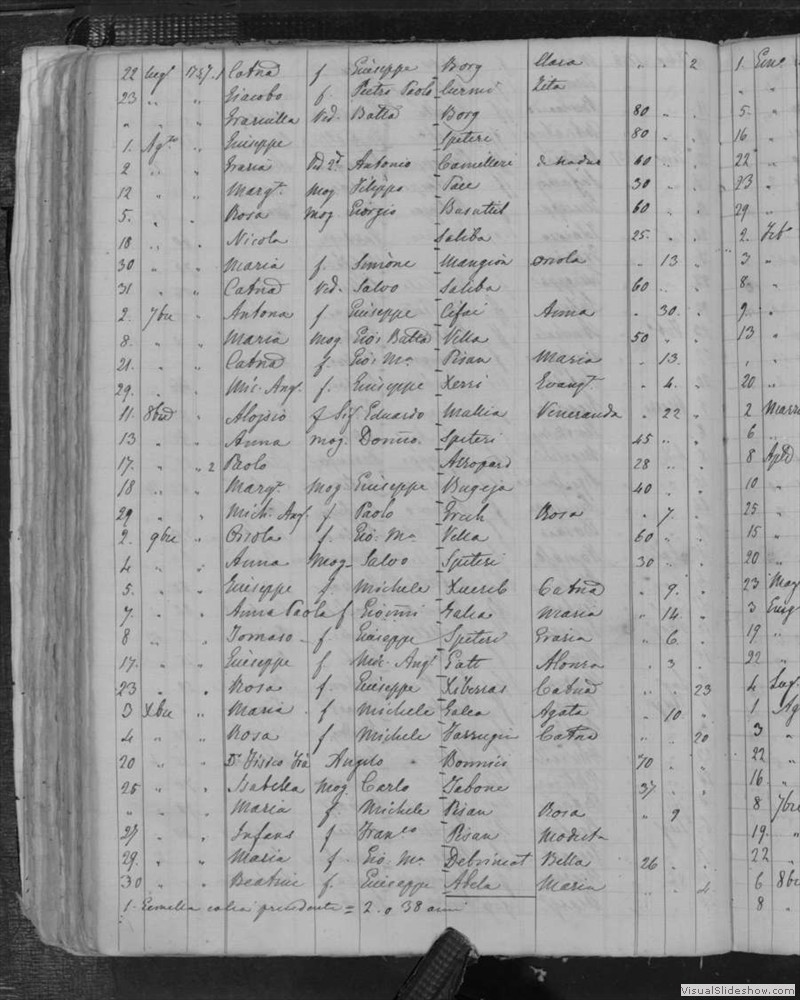 22 Lugl 1757. Catna f Giuseppe Borg Clara " . 2
23 " " Giacobo f. Pietro Paolo Curmi Zita
" " " Graziulla Ved. Batta Borg 80 " .
1. Agto " Giuseppe Spiteri 80 " .
2 " " Grazia Ved 2a Antonio Camilleri 60 " .
12 " " Margta mog Filippo Pace 30 " .
5. " " Rosa mog Giorgio Busuttil 60 " .
18 " " Nicola Saliba 25. " .
30 " " Maria f. Simone Mangion Orsola " 13 .
31 " " Catna Ved. Salvo Saliba 60 " .
2. 7bre " Antona f Giuseppe Cifai Anna . 30. .
8. " " Maria mog Gios Batta Vella 50 " .
21. " " Catna f. Gio. Ma Pisan Maria . 13. .
29. " " Mic. Angl. f. Giuseppe Xerri Evangta . 4. .
11. 8bre " Aloisio f Sigr Eduardo Mallia Veneranda . 22 .
13 " " Anna mog. Domco Spiteri 45 " .
17. " " 2 Paolo Azzopard 28 " .
18 " " Margta mog Giuseppe Bugeja 40 . .
29 " " Mich. Angl. f Paolo Grech Rosa . 7. .
2. 9bre " Orsola f. Gio. Ma Vella 60 " .
4 " " Anna Mog Salvo Spiteri 30 . .
5. " " Giuseppe f. Michele Xuereb Catna . 9. .
7. " " Anna Paola f Gioanni Galea Maria . 14. .
8 " " Tomaso f Giuseppe Spiteri Grazia " 6. .
17. " " Giuseppe f Mic. Angl Gatt Alonza . 3 .
23 " " Rosa f. Giuseppe Xiberras Catna " . 23
3 Xbre " Maria f Michele Galea Agata . 10 "
4 " " Rosa f Michele Farrugia Catna . " 20
20 " " Angelo Bonnici 70 . .
25 " " Isabella Mog. Carlo Tabone 37 . .
" " " Maria f. Michele Pisan Rosa " 9
27 " " Infans f Franco Pisan Modesta
29. " " Maria f. Gio. Ma Debrincat Bella 26 . .
30 " " Beatrice f. Giuseppe Abela Maria " . 4
1. Gemella colla precedente = 2. o 38 anni
1. Gen
5.
16
22
23
29
2. Feb
3
8.
9.
13
20
2 Marzo
6
8 Aple
10
25
15
20
23 Mag
3 Giug
19
22
4 Lug
1 Ag
3
22
16
8 7bre
19.
22
6 8bre
8
VisualSlideshow.com